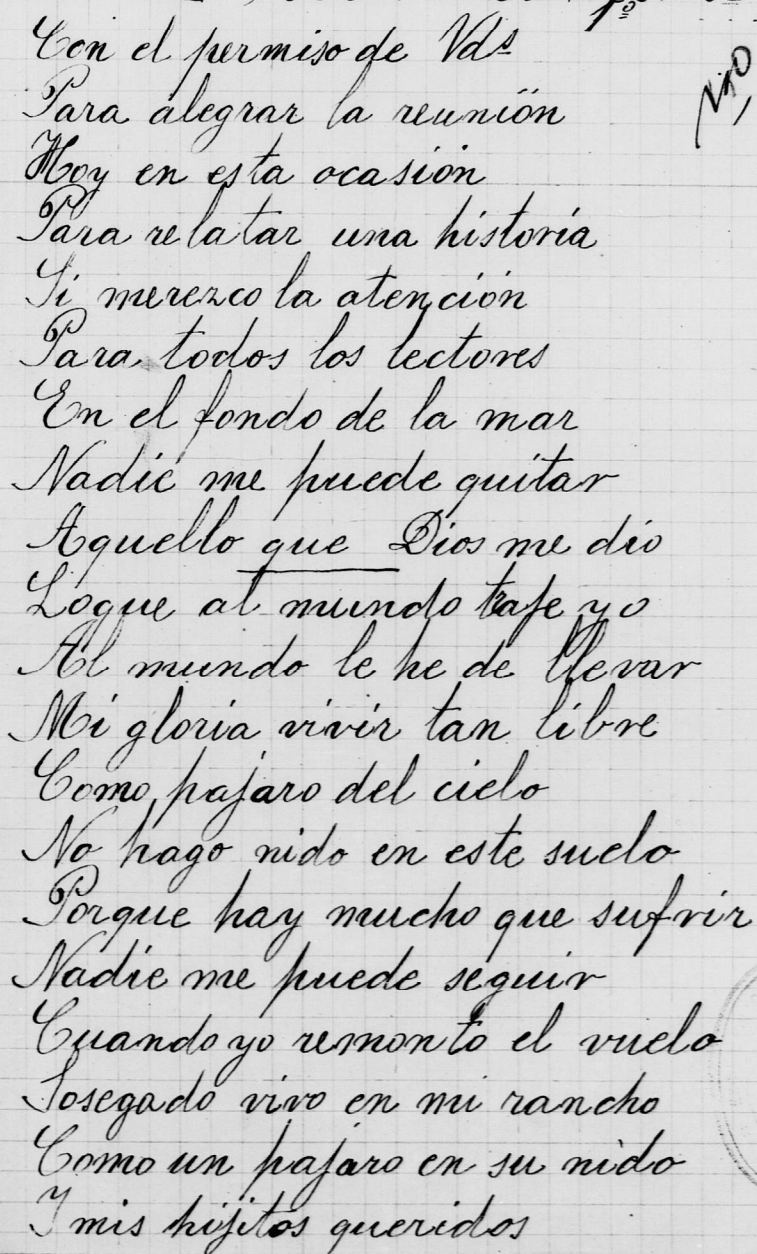 Con el permiso de Vds
Para alegrar la reunión
Hoy en esta ocasión
Para relatar una historia
Si merezco la atención
Para todos los lectores
En el fondo de la mar
Nadie me puede quitar
Aquello que Dios me dio
Loque al mundo traje yo
Al mundo le he de llevar
Mi gloria vivir tan libre
Como pajaro del cielo
No hago nido en este suelo
Porque hay mucho que sufrir
Nadie me puede seguir
Cuando yo remonto el vuelo
Sosegado vivo en mi rancho
Como un pajaro en su nido
Y mis hijitos queridos